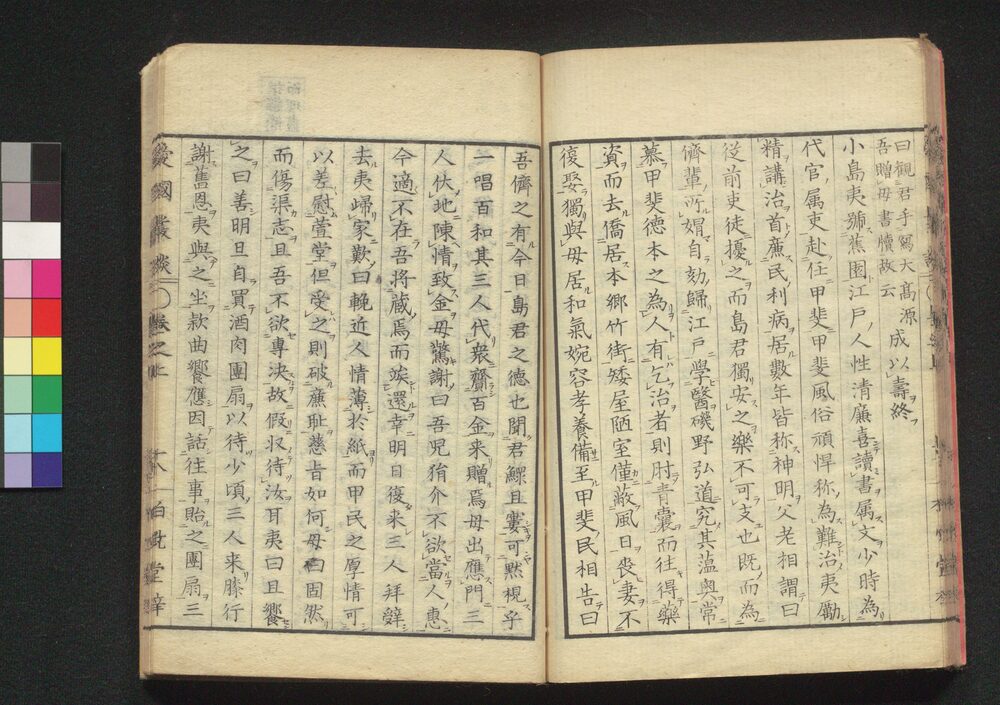 曰觀君手冩大髙源
吾贈母書牘故云
成以壽終
小島夷號蕉園江戸ノ人性清廉喜讀書属文少時為
代官属吏赴任甲斐甲斐風俗頑悍称為難治夷勵
精講治首廉民利病居數年皆称神明父老相謂曰
從前吏徒擾之而島君獨安之樂不可支也既而為
儕輩所媢自劾歸江戸學醫磯野弘道究其薀奥常
慕甲斐德本之為人有乞治者則肘青囊而往得藥
資而去僑居本郷竹街矮屋陋室僅蔽風日喪妻不
復娶獨與母居和氣婉容孝養備至甲斐民相告曰
吾儕之有今日島君之德也聞君鰥且窶可黙視乎
一唱百和其三人代衆齎百金来贈焉母出應門三
人伏地陳情致金母驚謝曰吾児狷介不欲當人惠
今適不在吾将蔵焉而竢還幸明日復来三人拜辤
去夷歸家歎曰輓近人情薄於紙而甲民之厚情可
以差慰萱堂但受之則破廉耻慈旨如何母曰固然
而傷渠志且吾不欲專決故假収待汝耳夷曰且饗
之曰善明旦自買酒肉團扇以待少頃三人来膝行
謝舊恩夷與之坐欵曲饗應因話往事貽之團扇三
卷之上